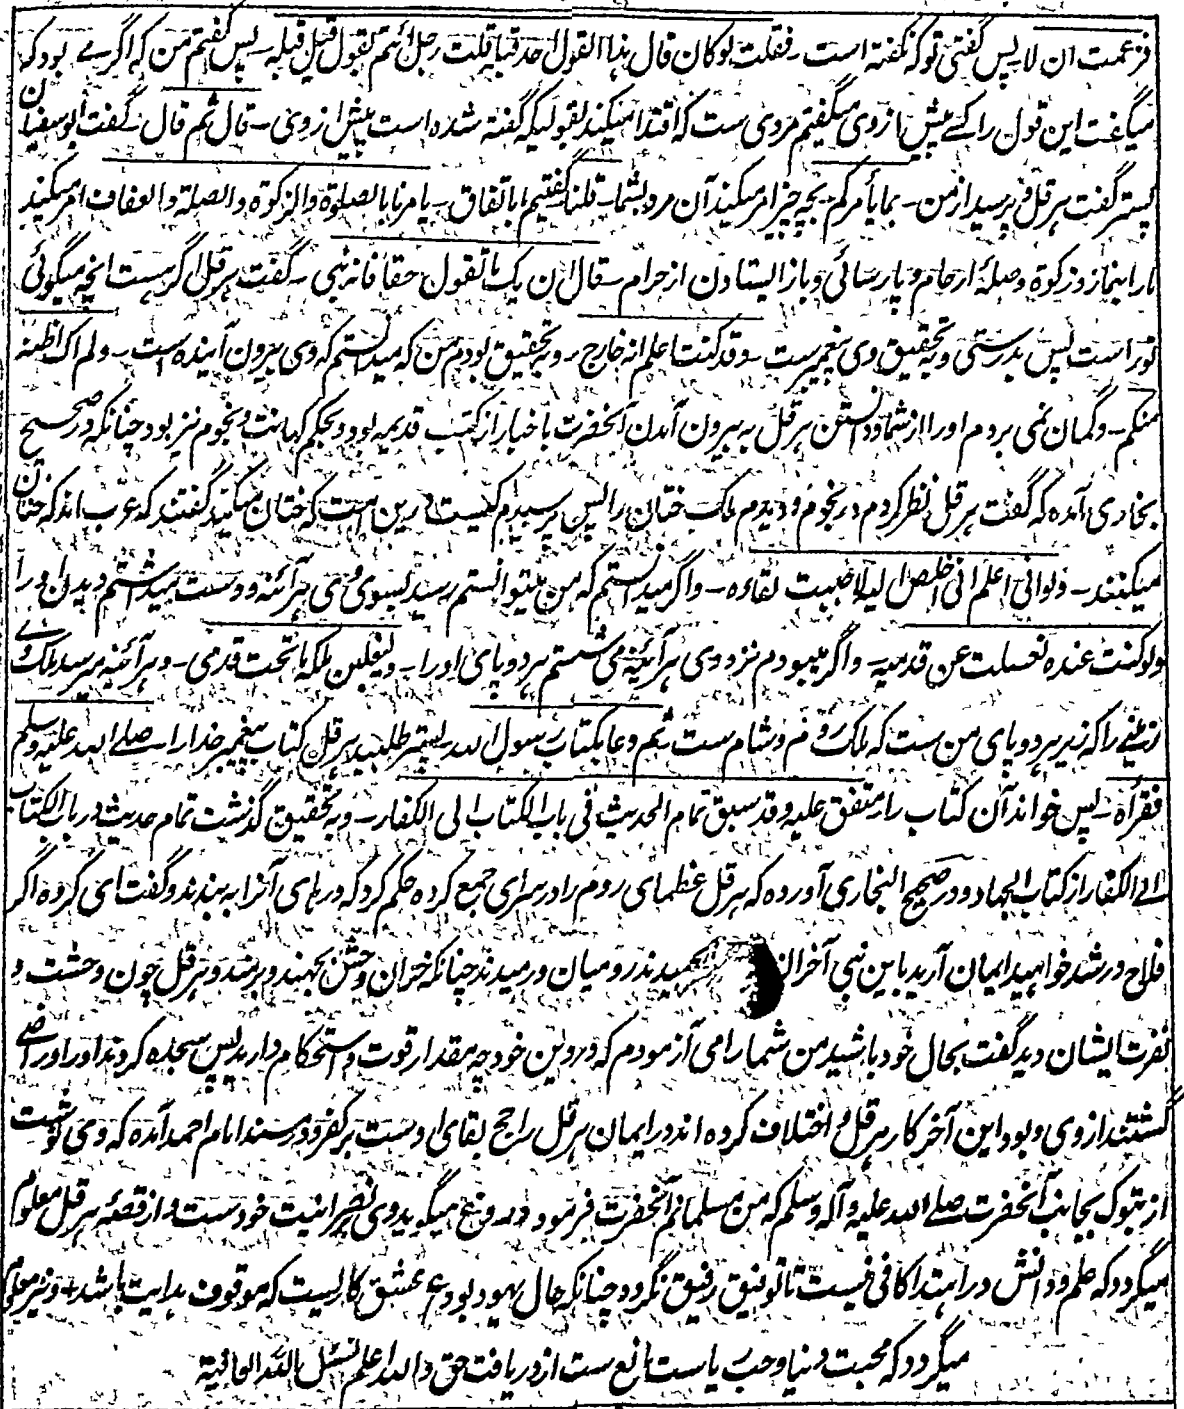 فزعمت ان لا پس گفتی تو که نگفته است - فقلت لو کان قال هذا القول احد قبله قلت رجل ائتم بقول قیل قبله - پس گفتم من که اگر می بود که
میگفت این قول را کسے پیش از وی میگفتم مردی ست که اقتدا میکند بقولیکه گفته شده است پیش از وی - قال ثم قال - گفت ابوسفیان
پستر گفت هرقل و پرسید از من - بما یأمرکم بچه چیز امر میکند آن مرد شما را - قلنا گفتیم ما باتفاق - یامرنا بالصلوة والزکوة والصلة والعفاف امر میکند
ما را بنماز و زکوة و صلهٔ ارحام و پارسائی و باز ایستادن از حرام - قال ان یک ما تقول حقا فانه نبی - گفت هرقل اگر هست آنچه میگوئی
تو راست پس بدرستی و به تحقیق وی پیغمبرست - وقد کنت اعلم انه خارج - و به تحقیق بودم من که میدانستم که وی بیرون آینده است - ولم اک اظنه
منکم - و گمان نمی بردم او را از شما و دانستن هرقل به بیرون آمدن آنحضرت باخبار از کتب قدیمه بود و بحکم کهانت و نجوم نیز بود چنانکه در صحیح
بخاری آمده که گفت هرقل نظر کردم در نجوم و دیدم ملک ختان را پس پرسیدم کیست درین امت که ختان میکند گفتند که عرب اند که ختان
میکنند - ولو انی اعلم انی اخلص الیه لاحببت لقاءه - و اگر میدانستم که من میتوانستم رسید بسوی وی هر آئنه دوست میداشتم دیدن او را
ولو کنت عنده لغسلت عن قدمیه - و اگر میبودم نزد وی هر آئینه می شستم هر دو پای او را - ولیبلغن ملکه ما تحت قدمی - و هر آئینه میرسد ملک وے
زمینے را که زیر هر دو پای من ست که ملک روم و شام ست ثم دعا بکتاب رسول الله پستر طلبید هرقل کتاب پیغمبر خدا را - صلے الله علیه وسلم
فقرأه - پس خواند آن کتاب را متفق علیه وقد سبق تمام الحدیث فی باب الکتاب الی الکفار - و به تحقیق گذشت تمام حدیث در باب الکتاب
الے الکفار از کتاب الجهاد و در صحیح البخاری آورده که هرقل عظمای روم را در سرای جمع کرده حکم کرد که درهای آنرا به بندند و گفت ای گروه اگر
فلاح و رشد خواهید ایمان آرید باین نبی آخر رومیان و رمیدند چنانکه خران وحشی بجهند و برمند و هرقل چون وحشت و
نفرت ایشان دید گفت بحال خود باشید من شما را می آزمودم که در دین خود چه مقدار قوت و استحکام دارید پس سجده کردند او را و راضے
گشتند از وی و بود این آخر کار هرقل و اختلاف کرده اند در ایمان هرقل راجح بقای اوست بر کفر و در مسند امام احمد آمده که وی نوشت
از تبوک بجانب آنحضرت صلے الله علیه و آله وسلم که من مسلمانم آنحضرت فرمود دروغ میگوید وی بر نصرانیت خودست و از قصهٔ هرقل معلوم
میگردد که علم و دانش در اهتدا کافی نیست تا توفیق رفیق نگردد چنانکه حال یهود بود ع عشق کاریست که موقوف هدایت باشد - و نیز معلوم
میگردد که محبت دنیا و حب ریاست مانع ست از دریافت حق والله اعلم نسئل الله العافیة